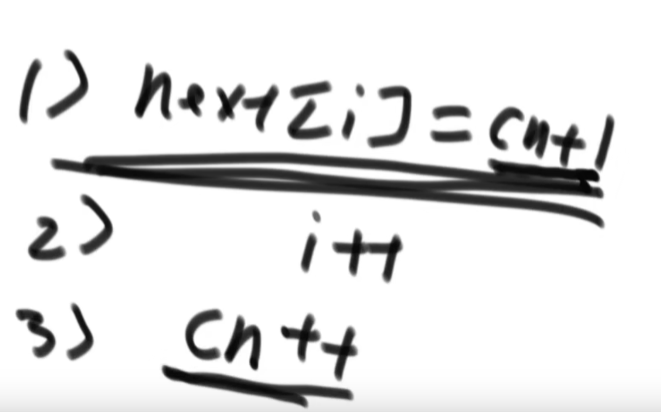 1) next[i] = cn+1
2) i++
3) cn++